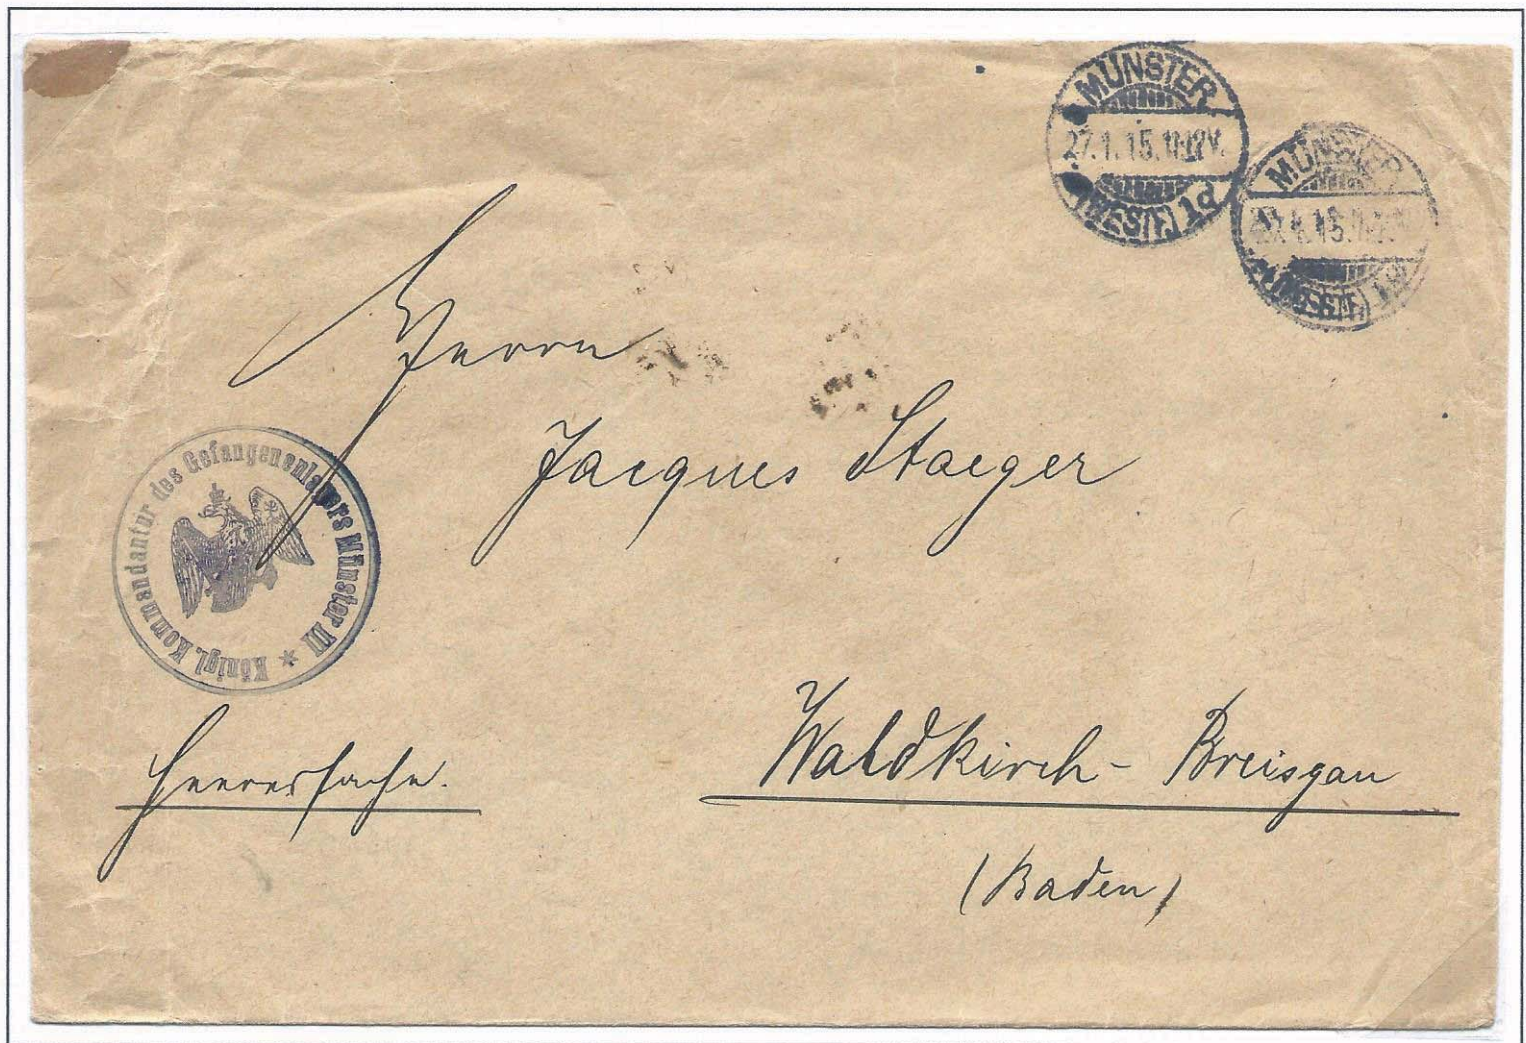 MÜNSTER
27.1.15.11-12V.
(WESTF.) 1d
MÜNSTER
(WESTF.)
Herrn
Jacques Staeger
Königl. Kommandantur des Gefangenenlagers Münster III *
Heeressache.
Waldkirch - Breisgau
(Baden)